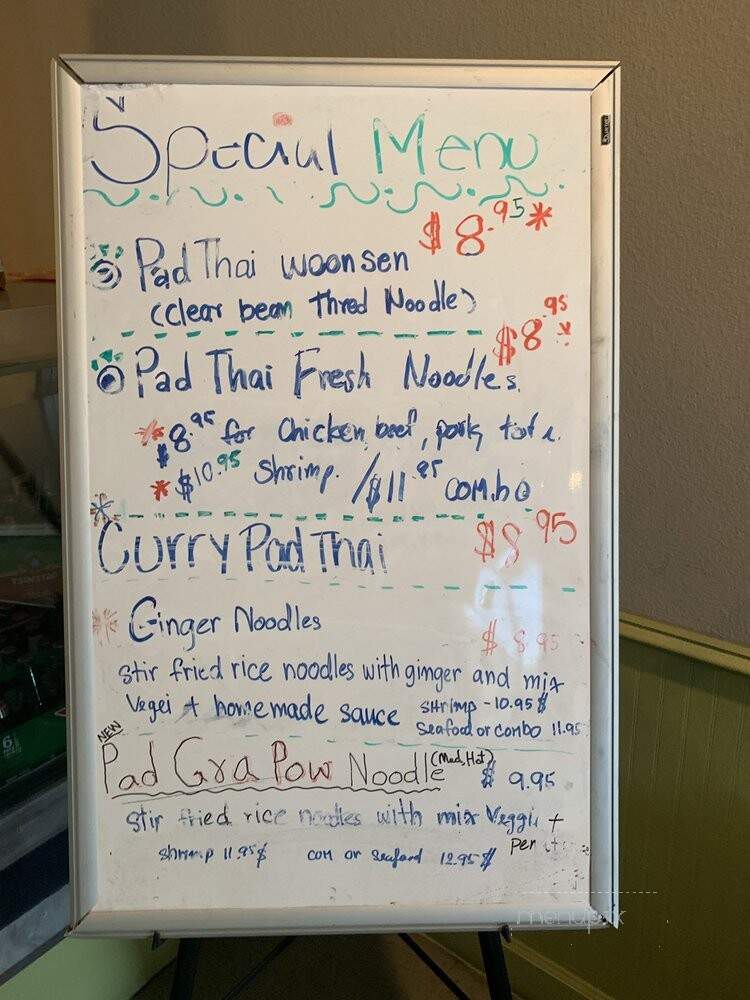 Special Menu
$8.95*
Pad Thai woonsen
(clear bean Thred Noodle)
$8.95*
Pad Thai Fresh Noodles.
*$8.95 for Chicken, beef, pork, tofu.
*$10.95 Shrimp. /$11.95 combo
*
Curry Pad Thai $8.95
* Ginger Noodles $8.95
Stir fried rice noodles with ginger and mix
Vegei + homemade sauce SHrimp - 10.95$
Seafood or combo 11.95
NEW
Pad Gra Pow Noodle (Med, Hot) $ 9.95
Stir fried rice noodles with mix Veggie +
Shrimp 11.95$ com or Seafood 12.95$
menupix